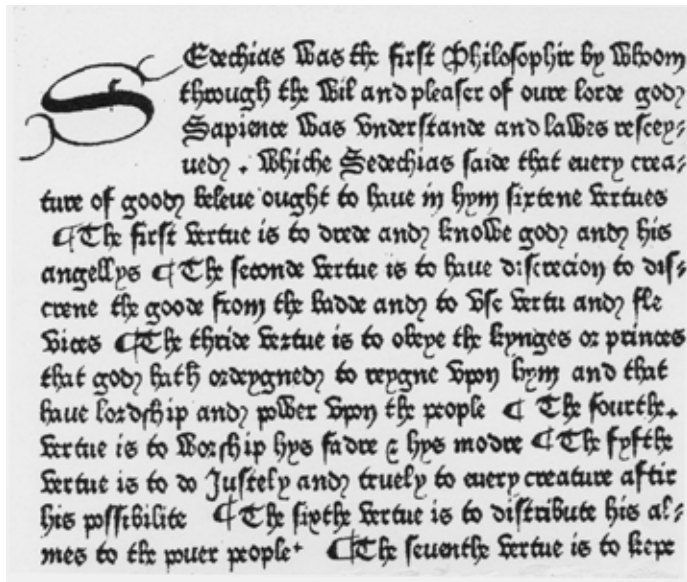 SEdechias was the first Philosophir by whoom
through the wil and pleaser of oure lorde god
Sapience was vnderstande and lawes rescey-
ued . whiche Sedechias saide that euery crea-
ture of good beleue ought to haue in hym sixtene vertues
¶The first vertue is to drede and knowe god and his
angellys ¶The seconde vertue is to haue discrecion to dis-
crene the goode from the badde and to vse vertu and fle
vices ¶The thride vertue is to obeye the kynges or princes
that god hath ordeygned to reygne vpon hym and that
haue lordship and power vpon the people ¶ The fourthe.
vertue is to worship hys fadre & hys modre ¶The fyfthe
vertue is to do Justely and truely to euery creature aftir
his possibilite ¶The sixthe vertue is to distribute his al-
mes to the pouer people· ¶The seuenthe vertue is to kepe